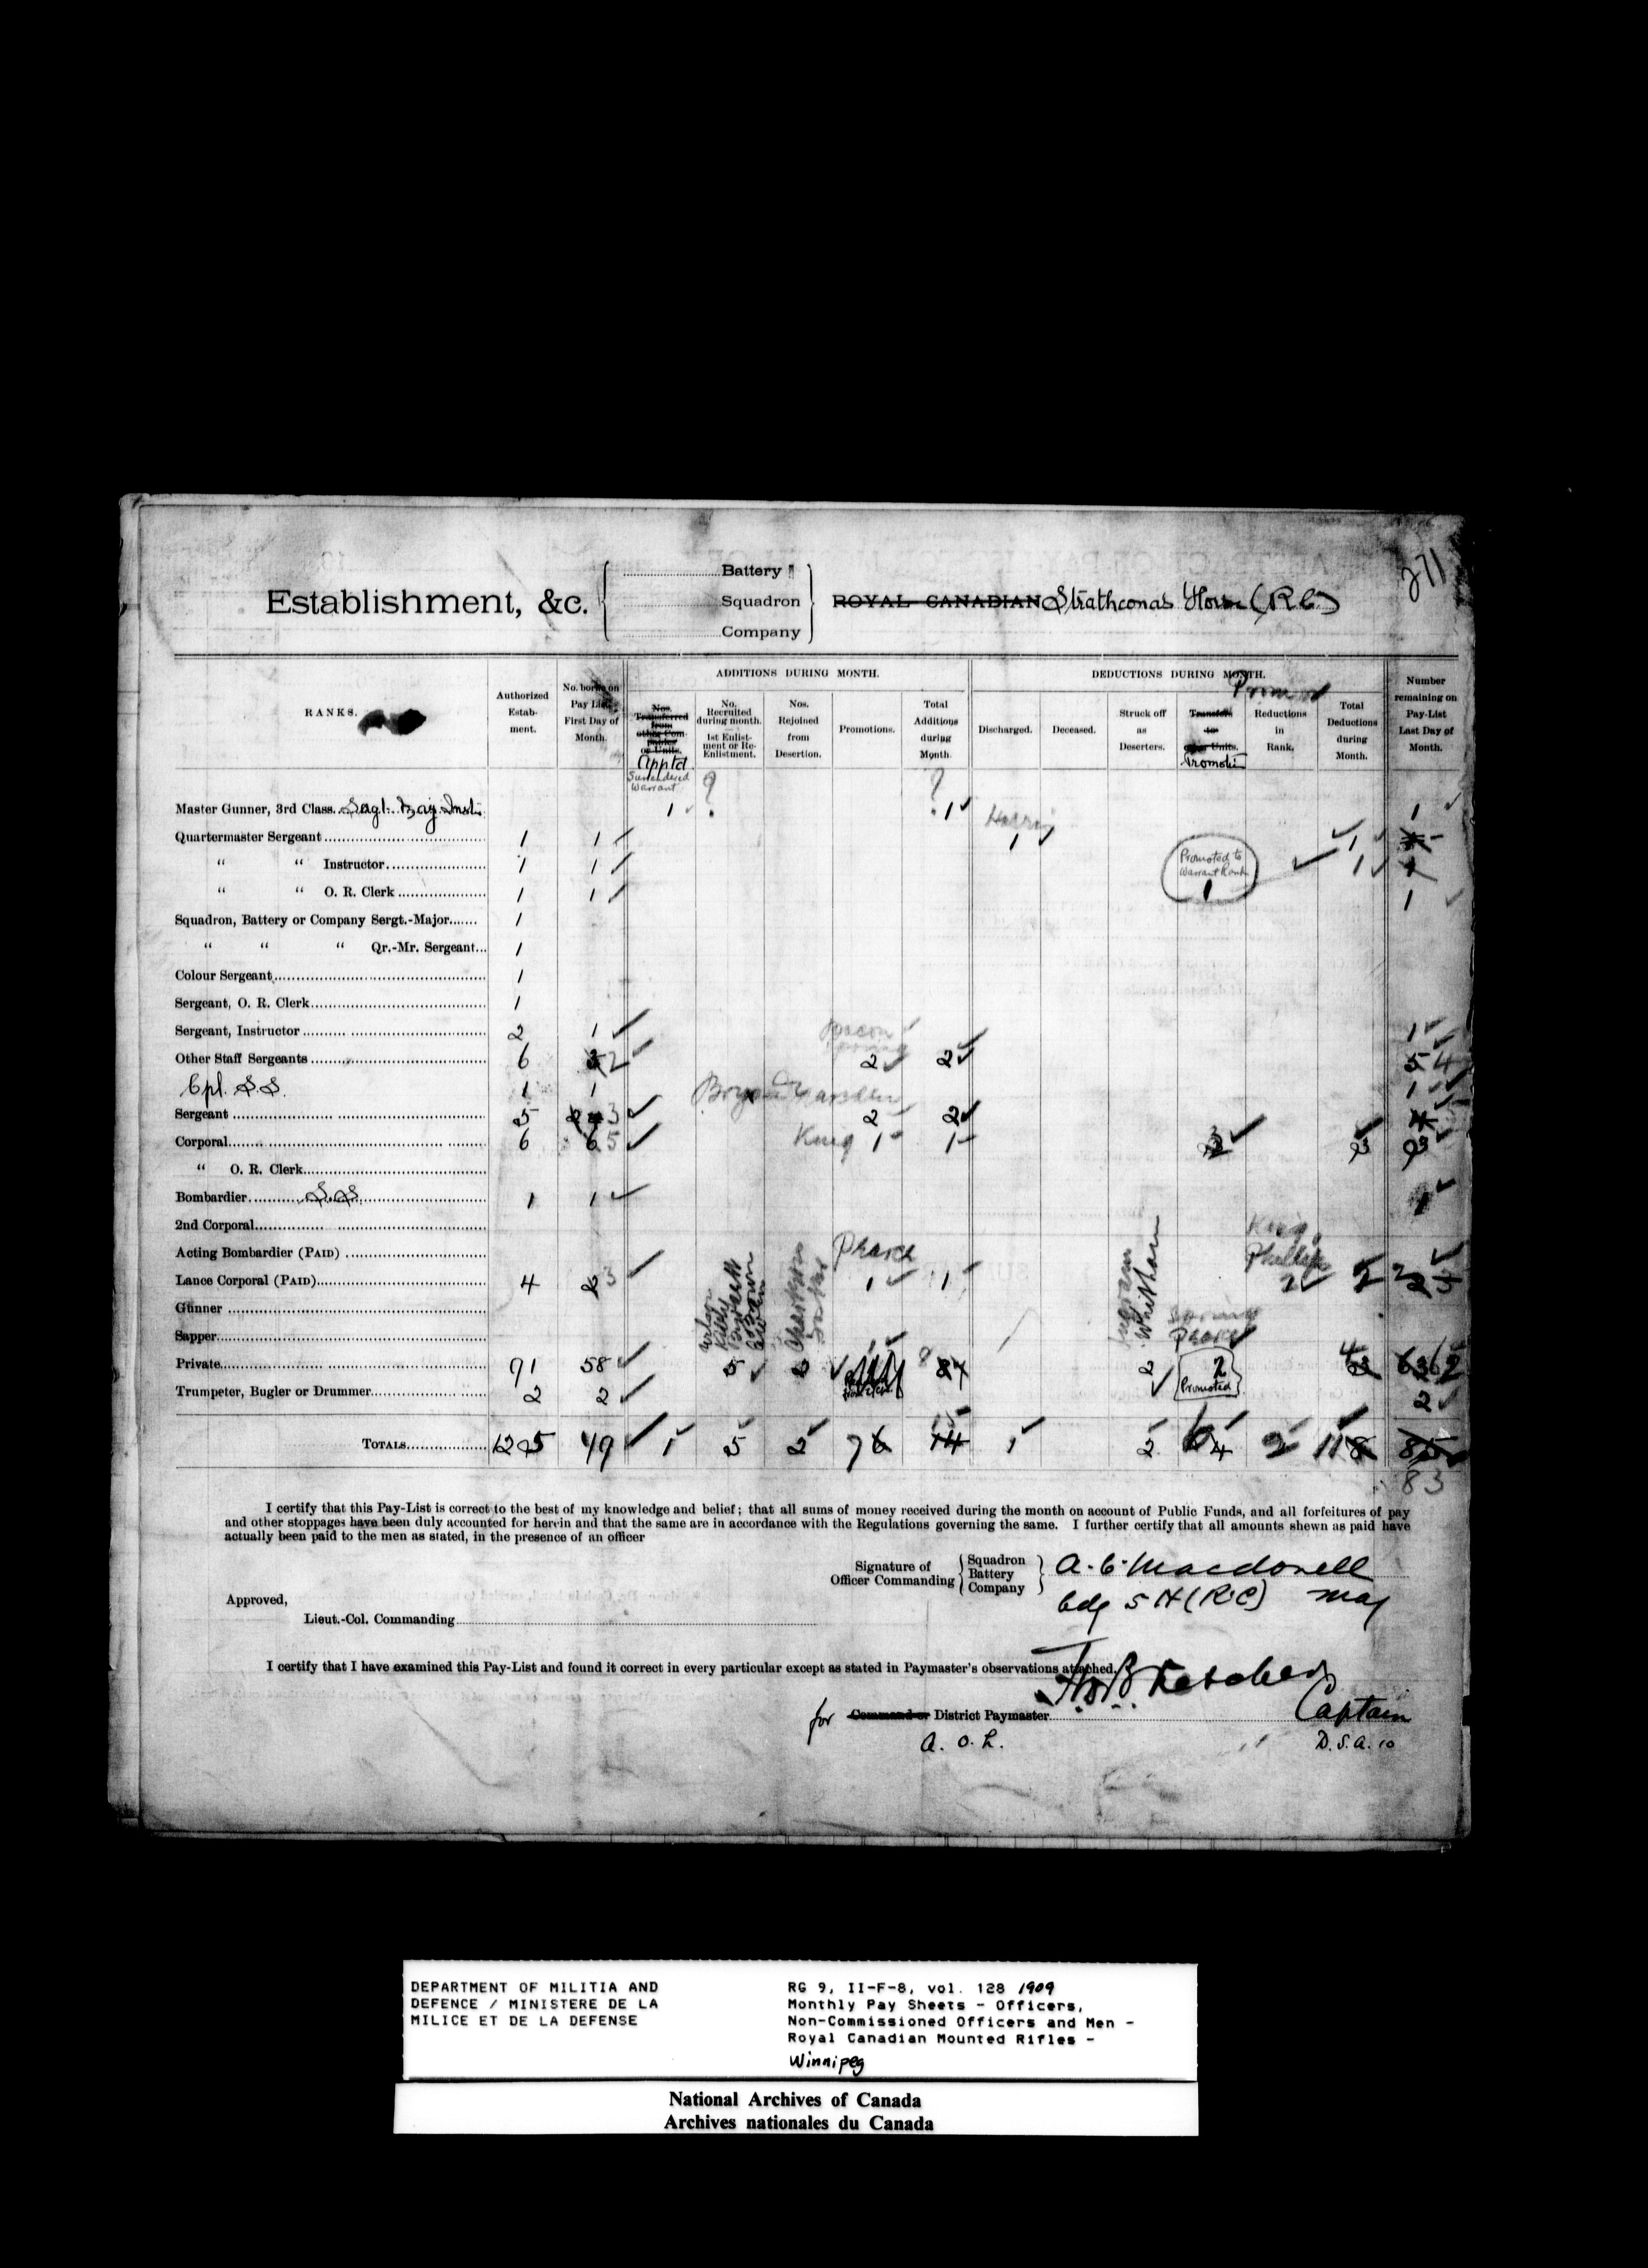 271
Establishment, &c. Battery Squadron Company ROYAL CANADIAN Strathconas Horse (R C)
ADDITIONS DURING MONTH. DEDUCTIONS DURING MONTH.
RANKS. Authorized Estab- ment. No. borne on Pay List First Day of Month. Nos. Transferred from other Com- panies or Units. App'td No. Recruited during month. 1st Enlist- ment or Re- Enlistment. Nos. Rejoined from Desertion. Promotions. Total Additions during Month. Discharged. Deceased. Struck off as Deserters. Transfers to other Units. Promotn Reductions in Rank. Total Deductions during Month. Number remaining on Pay-List Last Day of Month.
Surrendered Warrant ? ?
Master Gunner, 3rd Class 1 1 1
Quartermaster Sergeant 1 1 1 1
" " Instructor 1 1 Promoted to Warrant Rank 1 1
" " O. R. Clerk 1 1 1
Squadron, Battery or Company Sergt.-Major 1
" " " Qr.-Mr. Sergeant 1
Colour Sergeant 1
Sergeant, O. R. Clerk 1
Sergeant, Instructor 2 1 1
Other Staff Sergeants 6 2 2 2 5 4
Cpl. S.S. 1 1 1
Sergeant 5 3 2 2
Corporal 6 6 5 King 1 1 3
" O. R. Clerk
Bombardier S.S. 1 1 1
2nd Corporal
Acting Bombardier (PAID) Pearce King Phillips
Lance Corporal (PAID) 4 3 1 1 2 2
Gunner
Sapper Pearce
Private 91 58 5 2 2 2 Promoted 4 62
Trumpeter, Bugler or Drummer 2 2 2
TOTALS 125 79 1 5 2 7 6 14 1 2 6 4 2 11 8 85
83
I certify that this Pay-List is correct to the best of my knowledge and belief; that all sums of money received during the month on account of Public Funds, and all forfeitures of pay
and other stoppages have been duly accounted for herein and that the same are in accordance with the Regulations governing the same. I further certify that all amounts shewn as paid have
actually been paid to the men as stated, in the presence of an officer
Signature of Officer Commanding Squadron Battery Company A. C. Macdonell
Cdg S H (R.C) Maj
Approved,
Lieut.-Col. Commanding
I certify that I have examined this Pay-List and found it correct in every particular except as stated in Paymaster's observations attached.
for Command or District Paymaster Captain
A. O. L. D.S.A. 10
DEPARTMENT OF MILITIA AND
DEFENCE / MINISTERE DE LA
MILICE ET DE LA DEFENSE
RG 9, II-F-8, vol. 128 1909
Monthly Pay Sheets - Officers,
Non-Commissioned Officers and Men -
Royal Canadian Mounted Rifles -
Winnipeg
National Archives of Canada
Archives nationales du Canada